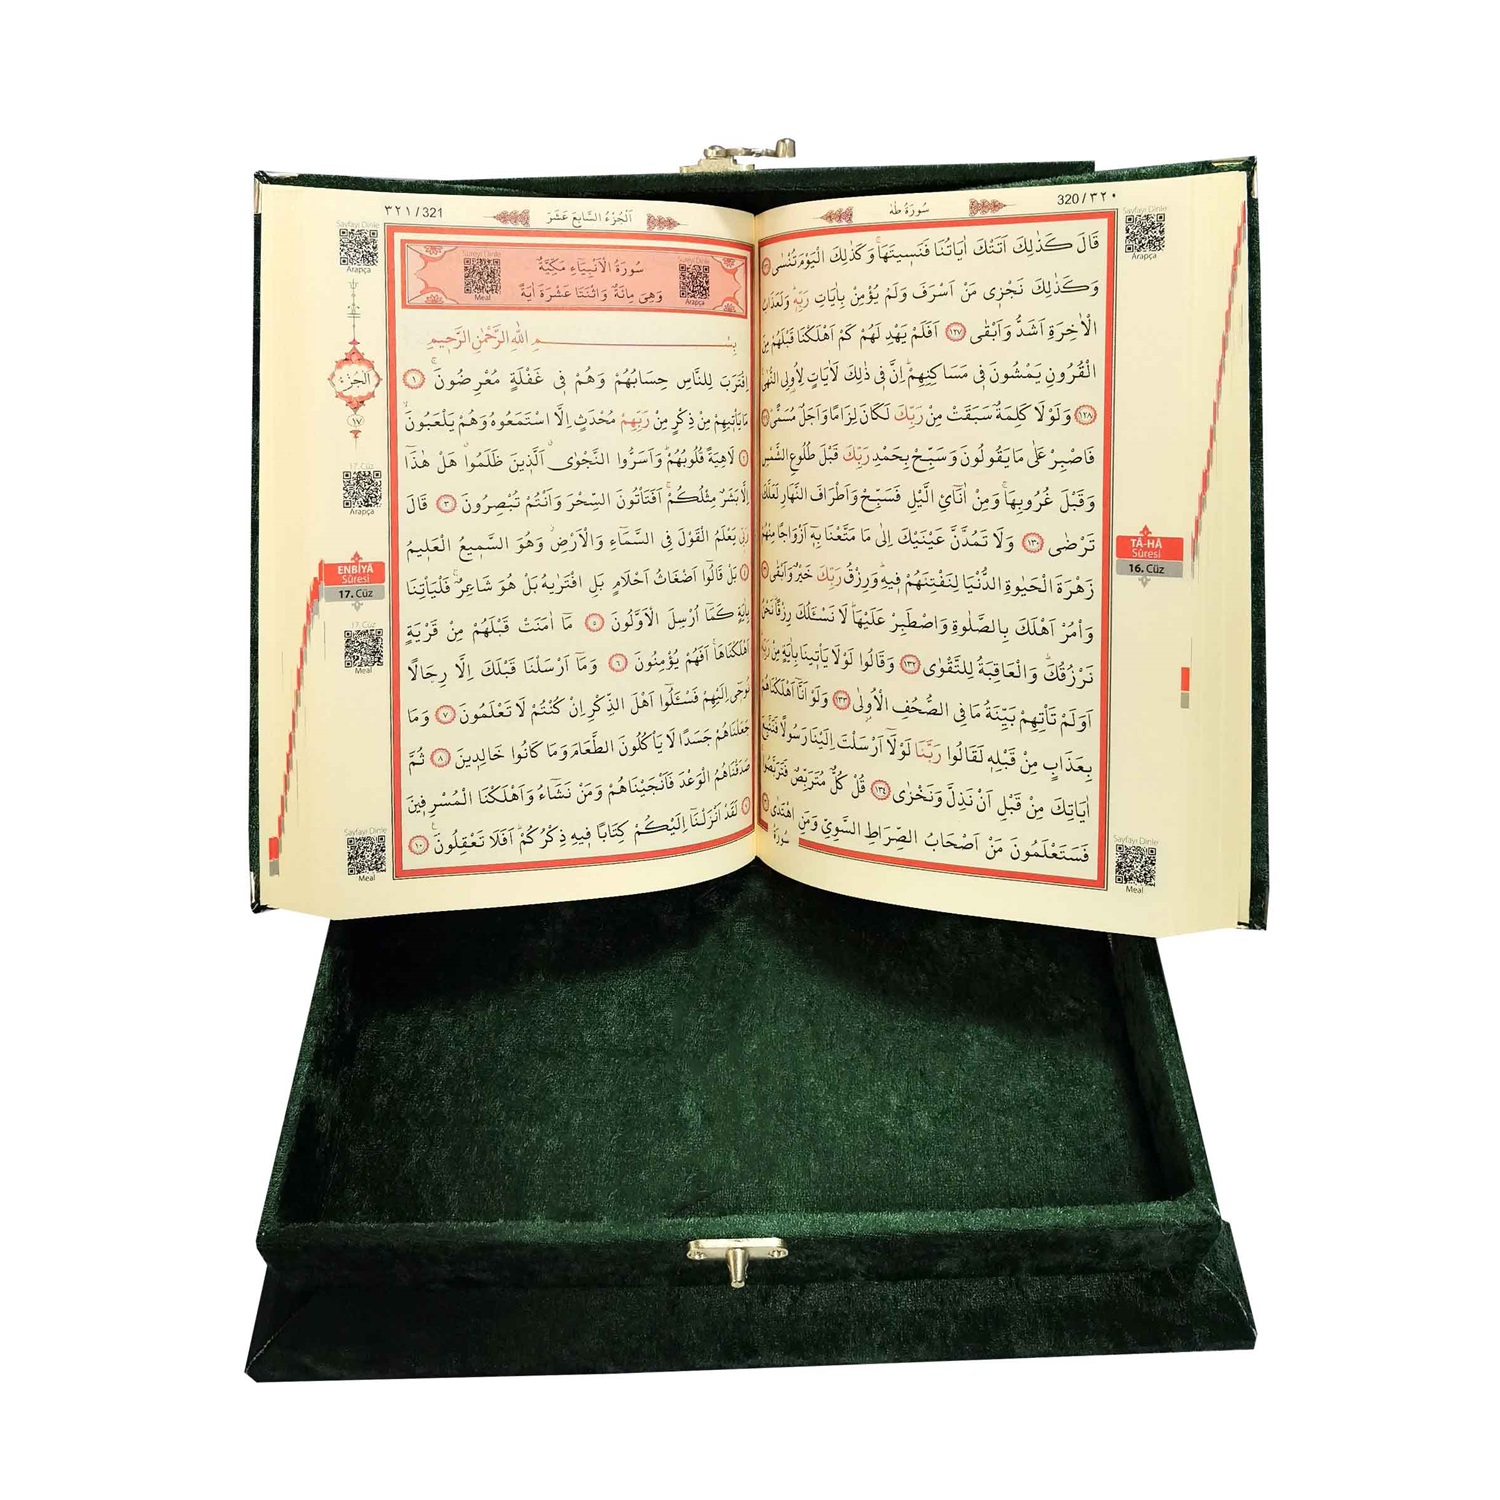 320 / ٣٢٠
سُورَةُ طٰهٰ
Sayfayı Dinle
Arapça
قَالَ كَذٰلِكَ اَتَتْكَ اٰيَاتُنَا فَنَسٖيتَهَاۚ وَكَذٰلِكَ الْيَوْمَ تُنْسٰى
وَكَذٰلِكَ نَجْزٖى مَنْ اَسْرَفَ وَلَمْ يُؤْمِنْ بِاٰيَاتِ رَبِّهٖؕ وَلَعَذَابُ
الْاٰخِرَةِ اَشَدُّ وَاَبْقٰى ١٢٧ اَفَلَمْ يَهْدِ لَهُمْ كَمْ اَهْلَكْنَا قَبْلَهُمْ مِنَ
الْقُرُونِ يَمْشُونَ فٖى مَسَاكِنِهِمْؕ اِنَّ فٖى ذٰلِكَ لَاٰيَاتٍ لِاُولِى النُّهٰى
١٢٨ وَلَوْلَا كَلِمَةٌ سَبَقَتْ مِنْ رَبِّكَ لَكَانَ لِزَامًا وَاَجَلٌ مُسَمًّى
فَاصْبِرْ عَلٰى مَا يَقُولُونَ وَسَبِّحْ بِحَمْدِ رَبِّكَ قَبْلَ طُلُوعِ الشَّمْسِ
وَقَبْلَ غُرُوبِهَاۚ وَمِنْ اٰنَٓائِ الَّيْلِ فَسَبِّحْ وَاَطْرَافَ النَّهَارِ لَعَلَّكَ
تَرْضٰى ١٣٠ وَلَا تَمُدَّنَّ عَيْنَيْكَ اِلٰى مَا مَتَّعْنَا بِهٖٓ اَزْوَاجًا مِنْهُمْ
زَهْرَةَ الْحَيٰوةِ الدُّنْيَا لِنَفْتِنَهُمْ فٖيهِؕ وَرِزْقُ رَبِّكَ خَيْرٌ وَاَبْقٰى
وَأْمُرْ اَهْلَكَ بِالصَّلٰوةِ وَاصْطَبِرْ عَلَيْهَاؕ لَا نَسْـَٔلُكَ رِزْقًاؕ نَحْنُ
نَرْزُقُكَؕ وَالْعَاقِبَةُ لِلتَّقْوٰى ١٣٢ وَقَالُوا لَوْلَا يَأْتٖينَا بِاٰيَةٍ مِنْ رَبِّهٖؕ
اَوَلَمْ تَأْتِهِمْ بَيِّنَةُ مَا فِى الصُّحُفِ الْاُولٰى ١٣٣ وَلَوْ اَنَّٓا اَهْلَكْنَاهُمْ
بِعَذَابٍ مِنْ قَبْلِهٖ لَقَالُوا رَبَّنَا لَوْلَٓا اَرْسَلْتَ اِلَيْنَا رَسُولًا فَنَتَّبِعَ
اٰيَاتِكَ مِنْ قَبْلِ اَنْ نَذِلَّ وَنَخْزٰى ١٣٤ قُلْ كُلٌّ مُتَرَبِّصٌ فَتَرَبَّصُواۚ
فَسَتَعْلَمُونَ مَنْ اَصْحَابُ الصِّرَاطِ السَّوِىِّ وَمَنِ اهْتَدٰى
سُورَةُ
TÂ-HÂ
Sûresi
16. Cüz
Sayfayı Dinle
Meal
٣٢١ / 321
اَلْجُزْءُ السَّابِعَ عَشَرَ
Sayfayı Dinle
Arapça
Sûreyi Dinle
Arapça
سُورَةُ الْاَنْبِيَاءِ مَكِّيَّةٌ
وَهِىَ مِائَةٌ وَاثْنَتَا عَشْرَةَ اٰيَةً
Sûreyi Dinle
Meal
بِسْمِ اللّٰهِ الرَّحْمٰنِ الرَّحٖيمِ
اِقْتَرَبَ لِلنَّاسِ حِسَابُهُمْ وَهُمْ فٖى غَفْلَةٍ مُعْرِضُونَۚ ١
مَا يَأْتٖيهِمْ مِنْ ذِكْرٍ مِنْ رَبِّهِمْ مُحْدَثٍ اِلَّا اسْتَمَعُوهُ وَهُمْ يَلْعَبُونَۙ
٢ لَاهِيَةً قُلُوبُهُمْؕ وَاَسَرُّوا النَّجْوٰىۗ اَلَّذٖينَ ظَلَمُواۗ هَلْ هٰذَٓا
اِلَّا بَشَرٌ مِثْلُكُمْۚ اَفَتَأْتُونَ السِّحْرَ وَاَنْتُمْ تُبْصِرُونَ ٣ قَالَ
رَبّٖى يَعْلَمُ الْقَوْلَ فِى السَّمَٓاءِ وَالْاَرْضِؗ وَهُوَ السَّمٖيعُ الْعَلٖيمُ
٤ بَلْ قَالُٓوا اَضْغَاثُ اَحْلَامٍ بَلِ افْتَرٰيهُ بَلْ هُوَ شَاعِرٌۚ فَلْيَأْتِنَا
بِاٰيَةٍ كَمَٓا اُرْسِلَ الْاَوَّلُونَ ٥ مَٓا اٰمَنَتْ قَبْلَهُمْ مِنْ قَرْيَةٍ
اَهْلَكْنَاهَاۚ اَفَهُمْ يُؤْمِنُونَ ٦ وَمَٓا اَرْسَلْنَا قَبْلَكَ اِلَّا رِجَالًا
نُوحٖٓى اِلَيْهِمْ فَسْـَٔلُٓوا اَهْلَ الذِّكْرِ اِنْ كُنْتُمْ لَا تَعْلَمُونَ ٧ وَمَا
جَعَلْنَاهُمْ جَسَدًا لَا يَأْكُلُونَ الطَّعَامَ وَمَا كَانُوا خَالِدٖينَ ٨ ثُمَّ
صَدَقْنَاهُمُ الْوَعْدَ فَاَنْجَيْنَاهُمْ وَمَنْ نَشَٓاءُ وَاَهْلَكْنَا الْمُسْرِفٖينَ
٩ لَقَدْ اَنْزَلْنَٓا اِلَيْكُمْ كِتَابًا فٖيهِ ذِكْرُكُمْؕ اَفَلَا تَعْقِلُونَۚ ١٠
اَلْجُزْءُ
١٧
17. Cüz
Arapça
ENBİYÂ
Sûresi
17. Cüz
17. Cüz
Meal
Sayfayı Dinle
Meal